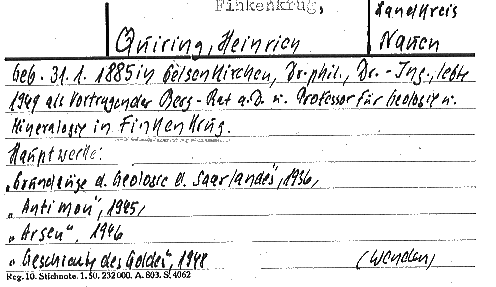 Finkenkrug,
Landkreis
Quiring, Heinrich
Nauen
geb. 31.1.1885 in Gelsenkirchen, Dr. phil., Dr.-Ing., lebte
1949 als Vortragender Berg-Rat a.D. u. Professor für Geologie u.
Mineralogie in Finkenkrug.
Hauptwerke:
„Grundzüge d. Geologie d. Saarlandes", 1936,
„Antimon", 1945,
„Arsen", 1946
„Geschichte des Goldes", 1948
(Wenden)
Reg. 10. Stichnote. 1. 50. 232000. A. 803. S. 4062